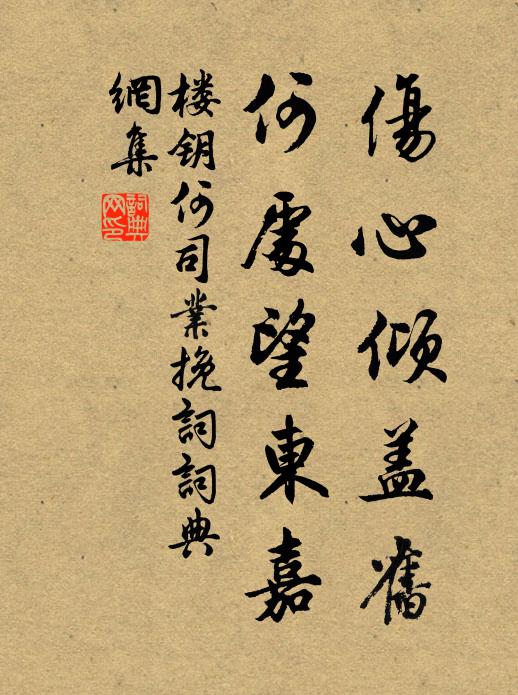 傷心傾盖舊
何處望東嘉
楼钥何司業挽詞詞典
網集
詞典
网印